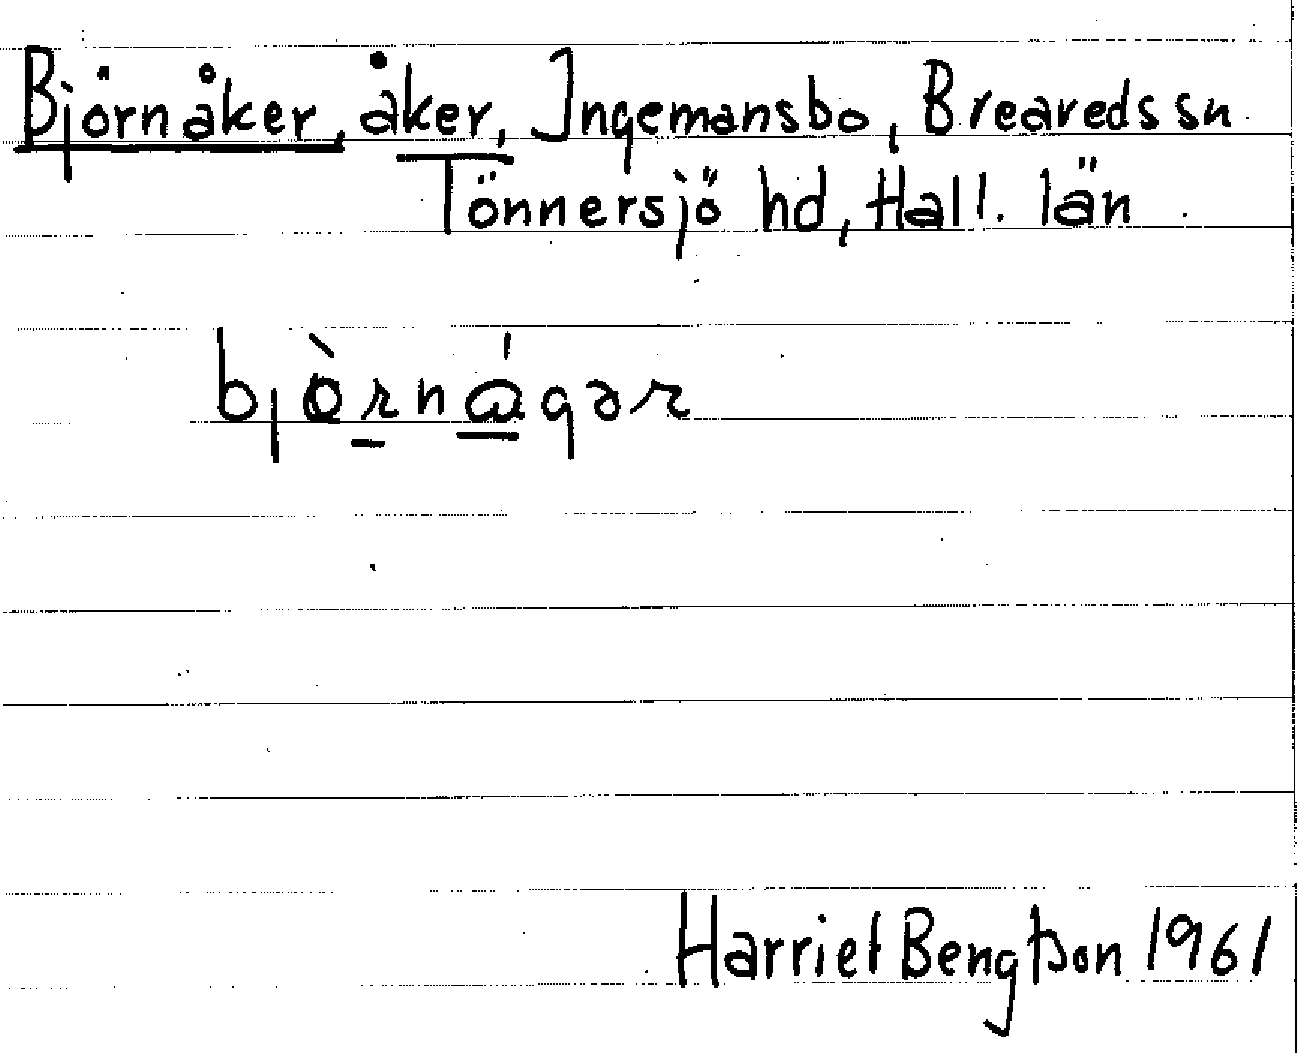 Björnåker, åker, Ingemansbo, Breareds sn
Tönnersjö hd, Hall. län
bjòrnágər
Harriet Bengtson 1961